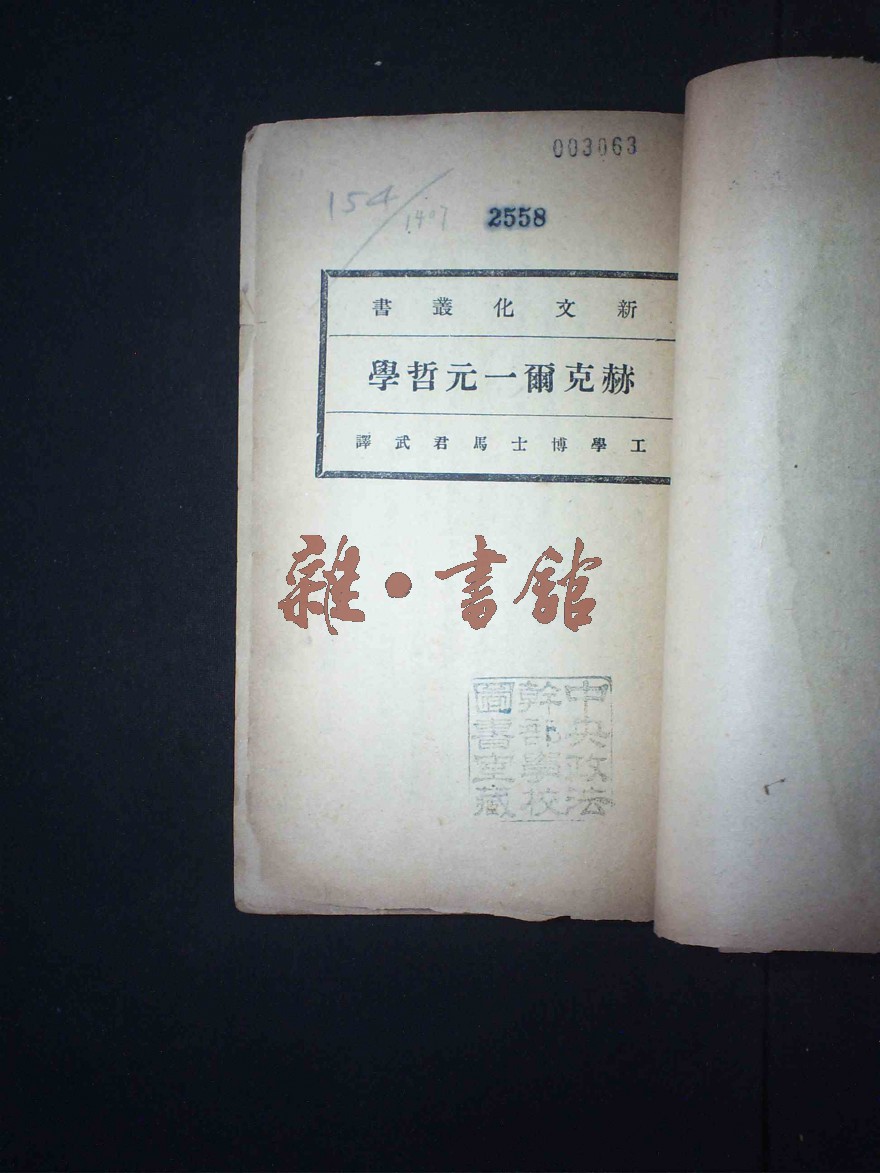 003063
154/1407
2558
新文化叢書
赫克爾一元哲學
工學博士馬君武譯
雜·書館
中央政法
幹部學校
圖書室藏